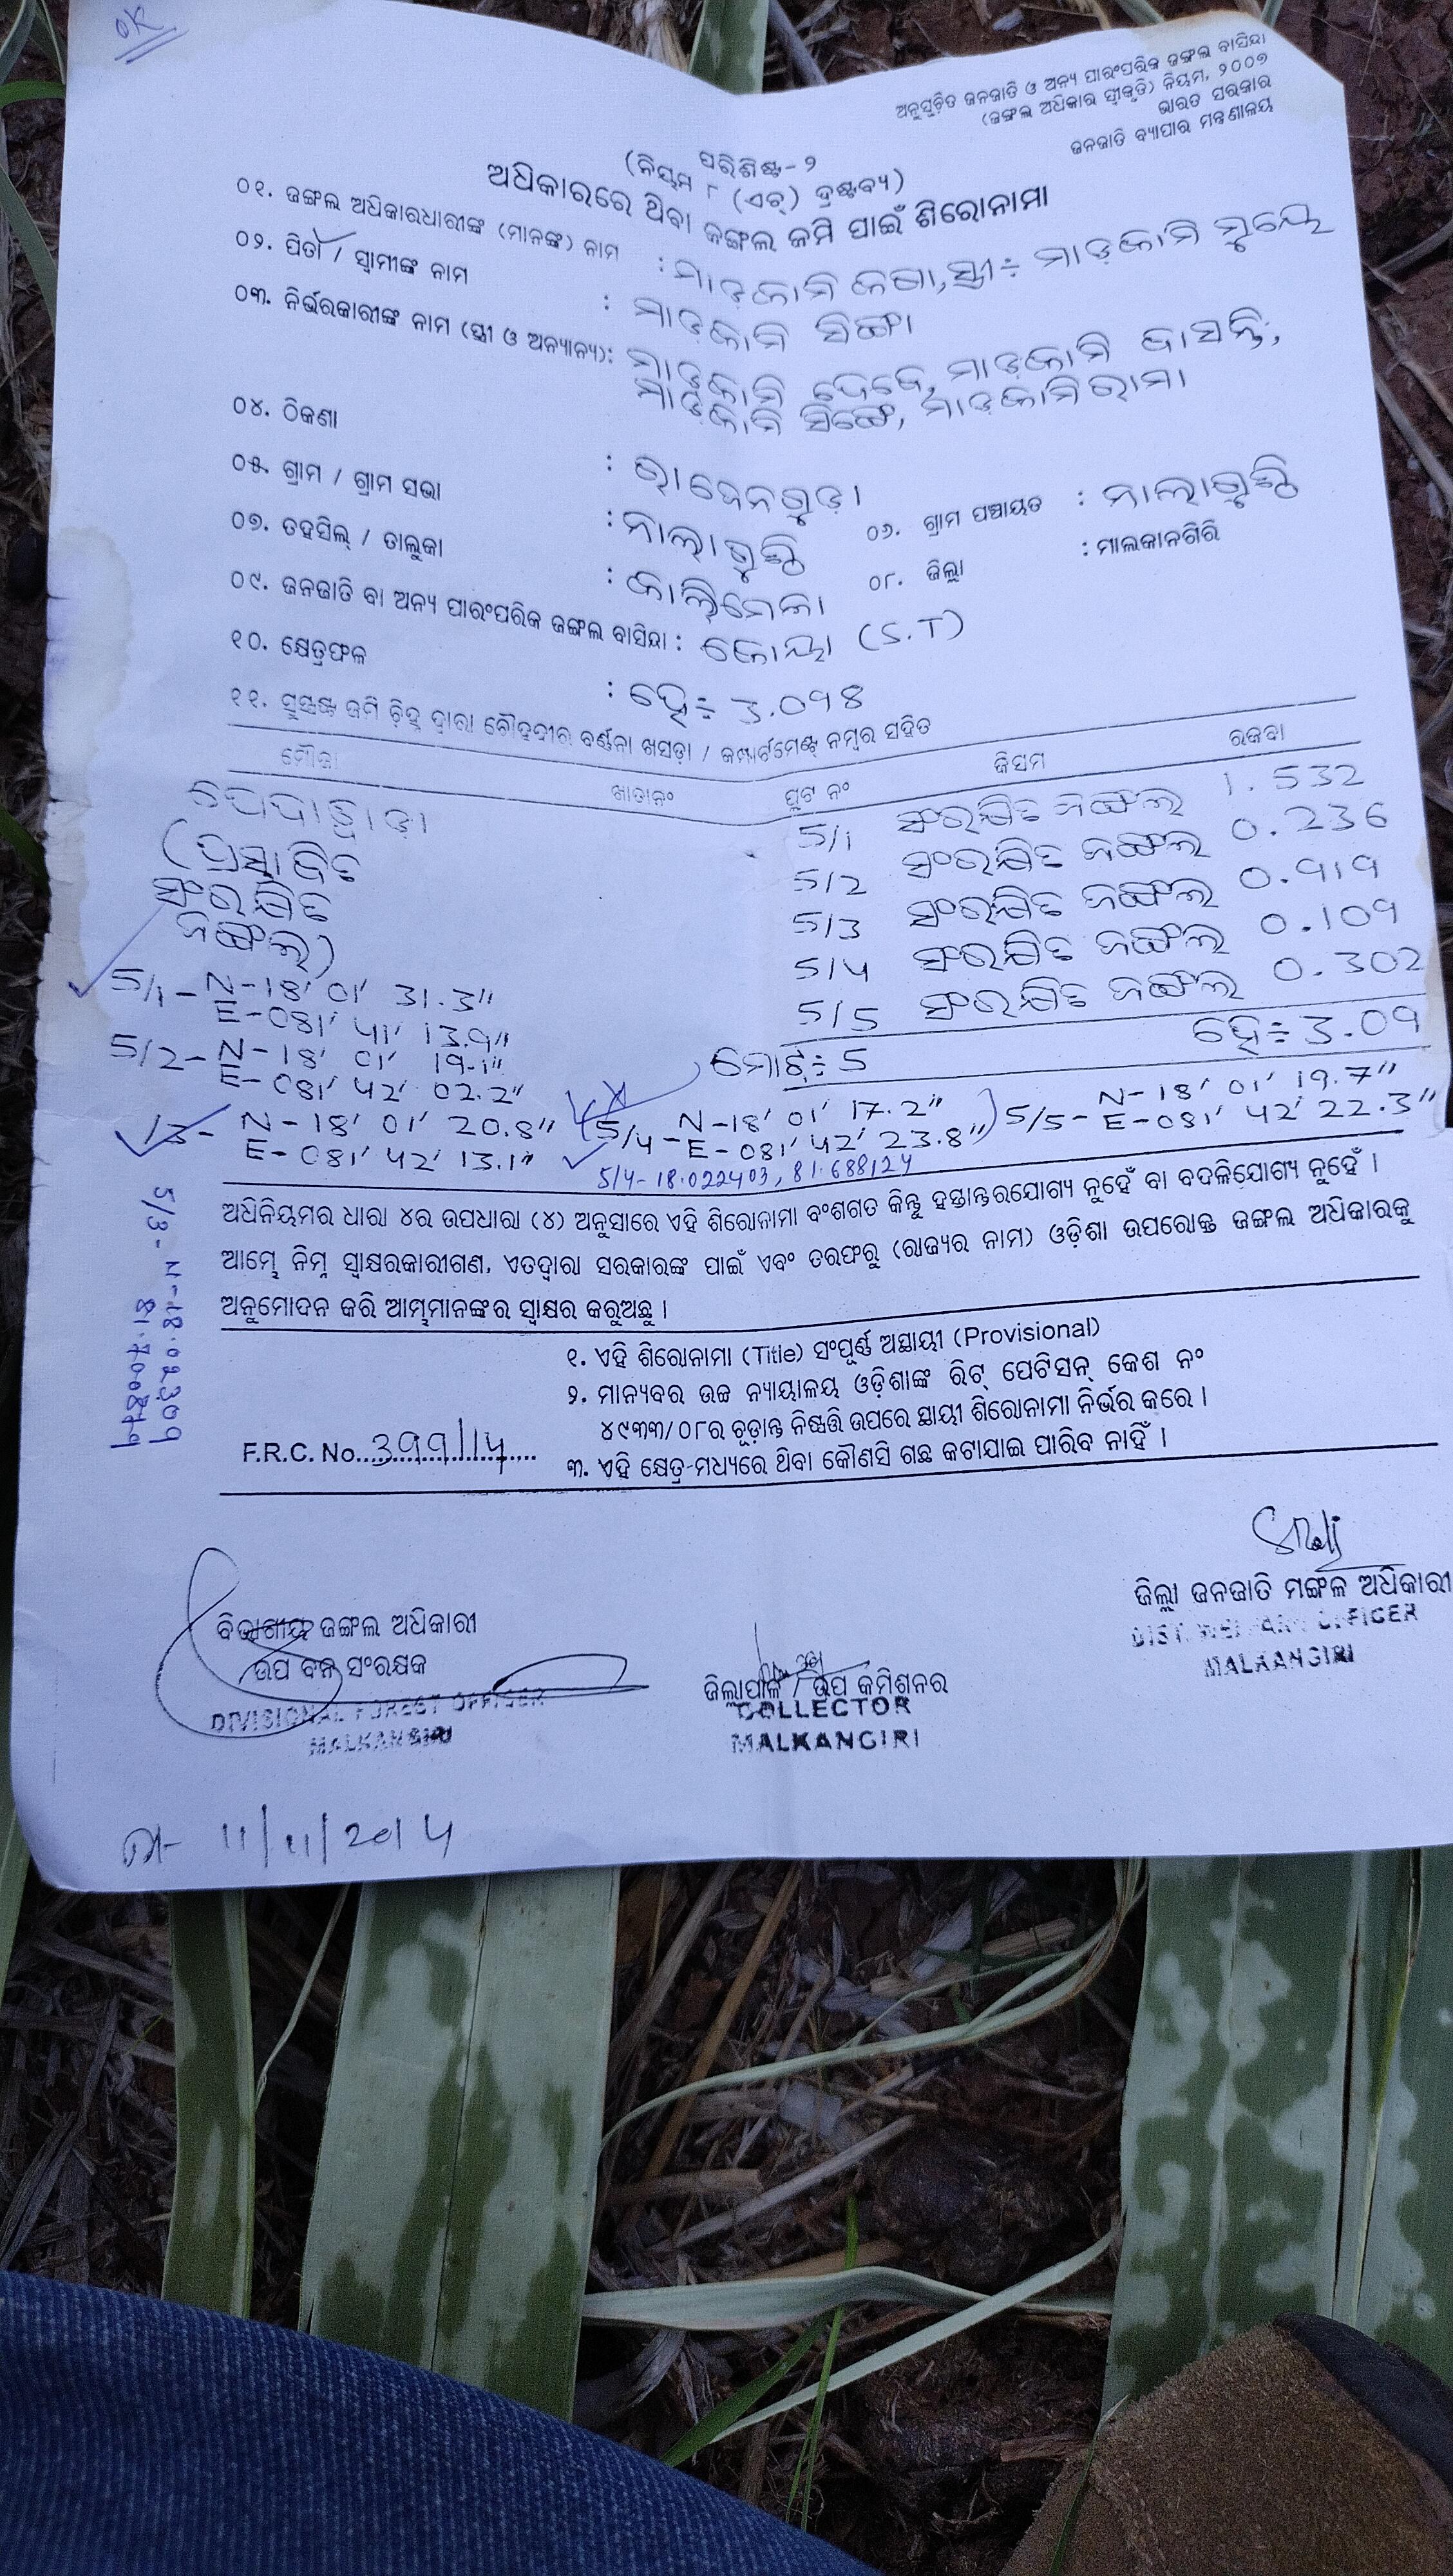 OK
ଅନୁସୂଚିତ ଜନଜାତି ଓ ଅନ୍ୟ ପାରଂପରିକ ଜଙ୍ଗଲ ବାସିନ୍ଦା
(ଜଙ୍ଗଲ ଅଧିକାର ସ୍ୱୀକୃତି) ନିୟମ, ୨୦୦୭
ଭାରତ ସରକାର
ଜନଜାତି ବ୍ୟାପାର ମନ୍ତ୍ରଣାଳୟ
ପରିଶିଷ୍ଟ-୨
(ନିୟମ ୮ (ଏଚ୍) ଦ୍ରଷ୍ଟବ୍ୟ)
ଅଧିକାରରେ ଥିବା ଜଙ୍ଗଲ ଜମି ପାଇଁ ଶିରୋନାମା
୦୧. ଜଙ୍ଗଲ ଅଧିକାରଧାରୀଙ୍କ (ମାନଙ୍କ) ନାମ : ମାଡ଼କାମି ଜଗା, ସ୍ତ୍ରୀ÷ ମାଡ଼କାମି ମୁୟେ
୦୨. ପିତା / ସ୍ୱାମୀଙ୍କ ନାମ : ମାଡ଼କାମି ସିଙ୍ଗା
୦୩. ନିର୍ଭରକାରୀଙ୍କ ନାମ (ସ୍ତ୍ରୀ ଓ ଅନ୍ୟାନ୍ୟ): ମାଡ଼କାମି ଦେବେ, ମାଡ଼କାମି ବାସନ୍ତି,
ମାଡ଼କାମି ସିଙ୍ଗେ, ମାଡ଼କାମି ରାମା
୦୪. ଠିକଣା : ରାଜେନଗୁଡ଼ା
୦୫. ଗ୍ରାମ / ଗ୍ରାମ ସଭା : ନାଲାଗୁଣ୍ଠି ୦୬. ଗ୍ରାମ ପଞ୍ଚାୟତ : ନାଲାଗୁଣ୍ଠି
୦୭. ତହସିଲ୍ / ତାଲୁକା : କାଲିମେଳା ୦୮. ଜିଲ୍ଲା : ମାଲକାନଗିରି
୦୯. ଜନଜାତି ବା ଅନ୍ୟ ପାରଂପରିକ ଜଙ୍ଗଲ ବାସିନ୍ଦା : କୋୟା (S.T)
୧୦. କ୍ଷେତ୍ରଫଳ : ହେ÷ 3.098
୧୧. ସୁସ୍ପଷ୍ଟ ଜମି ଚିହ୍ନ ଦ୍ୱାରା ଚୌହଦ୍ଦୀର ବର୍ଣ୍ଣନା ଖସଡ଼ା / କମ୍ପାର୍ଟମେଣ୍ଟ ନମ୍ବର ସହିତ
ମୌଜା ଖାତା ନଂ ପ୍ଲଟ ନଂ କିସମ ରକବା
5/1 ସଂରକ୍ଷିତ ଜଙ୍ଗଲ 1.532
5/2 ସଂରକ୍ଷିତ ଜଙ୍ଗଲ 0.236
(ପ୍ରସ୍ତାବିତ 5/3 ସଂରକ୍ଷିତ ଜଙ୍ଗଲ 0.919
ସଂରକ୍ଷିତ 5/4 ସଂରକ୍ଷିତ ଜଙ୍ଗଲ 0.109
ଜଙ୍ଗଲ) 5/5 ସଂରକ୍ଷିତ ଜଙ୍ଗଲ 0.302
ମୋଟ÷ 5 ହେ÷ 3.09
5/1 - N-18' 01' 31.3"
E-081' 41' 13.9"
5/2 - N-18' 01' 19.1"
E-081' 42' 02.2"
/3 - N-18' 01' 20.8"
E-081' 42' 13.1"
(5/4 - N-18' 01' 17.2"
E-081' 42' 23.8")
5/5 - N-18' 01' 19.7"
E-081' 42' 22.3"
5/4- 18.022403, 81.688124
5/3- N-18.02309
81.70
ଅଧିନିୟମର ଧାରା ୪ର ଉପଧାରା (୪) ଅନୁସାରେ ଏହି ଶିରୋନାମା ବଂଶଗତ କିନ୍ତୁ ହସ୍ତାନ୍ତରଯୋଗ୍ୟ ନୁହେଁ ବା ବଦଳିଯୋଗ୍ୟ ନୁହେଁ ।
ଆମ୍ଭେ ନିମ୍ନ ସ୍ୱାକ୍ଷରକାରୀଗଣ, ଏତଦ୍ଦ୍ୱାରା ସରକାରଙ୍କ ପାଇଁ ଏବଂ ତରଫରୁ (ରାଜ୍ୟର ନାମ) ଓଡ଼ିଶା ଉପରୋକ୍ତ ଜଙ୍ଗଲ ଅଧିକାରକୁ
ଅନୁମୋଦନ କରି ଆମ୍ଭମାନଙ୍କର ସ୍ୱାକ୍ଷର କରୁଅଛୁ ।
୧. ଏହି ଶିରୋନାମା (Title) ସଂପୂର୍ଣ୍ଣ ଅସ୍ଥାୟୀ (Provisional)
୨. ମାନ୍ୟବର ଉଚ୍ଚ ନ୍ୟାୟାଳୟ ଓଡ଼ିଶାଙ୍କ ରିଟ୍ ପେଟିସନ୍ କେଶ ନଂ
୪୯୩୩/୦୮ର ଚୂଡ଼ାନ୍ତ ନିଷ୍ପତ୍ତି ଉପରେ ସ୍ଥାୟୀ ଶିରୋନାମା ନିର୍ଭର କରେ ।
୩. ଏହି କ୍ଷେତ୍ର ମଧ୍ୟରେ ଥିବା କୌଣସି ଗଛ କଟାଯାଇ ପାରିବ ନାହିଁ ।
F.R.C. No. 399/14
ଜିଲ୍ଲା ଜନଜାତି ମଙ୍ଗଳ ଅଧିକାରୀ
DIST. WELFARE OFFICER
MALKANGIRI
ବିଭାଗୀୟ ଜଙ୍ଗଲ ଅଧିକାରୀ
ଉପ ବନ ସଂରକ୍ଷକ
DIVISIONAL FOREST OFFICER
MALKANGIRI
ଜିଲ୍ଲାପାଳ / ଉପ କମିଶନର
COLLECTOR
MALKANGIRI
ତା- 11/11/2014